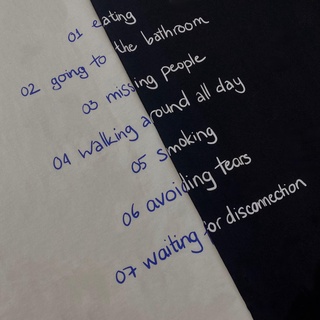 01 eating
02 going to the bathroom
03 missing people
04 walking around all day
05 smoking
06 avoiding tears
07 waiting for disconnection